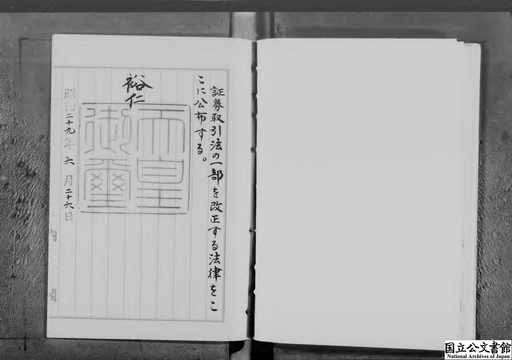 証券取引法の一部を改正する法律をこ
こに公布する。
裕仁
天皇
御璽
昭和二十九年六月二十六日
国立公文書館
National Archives of Japan